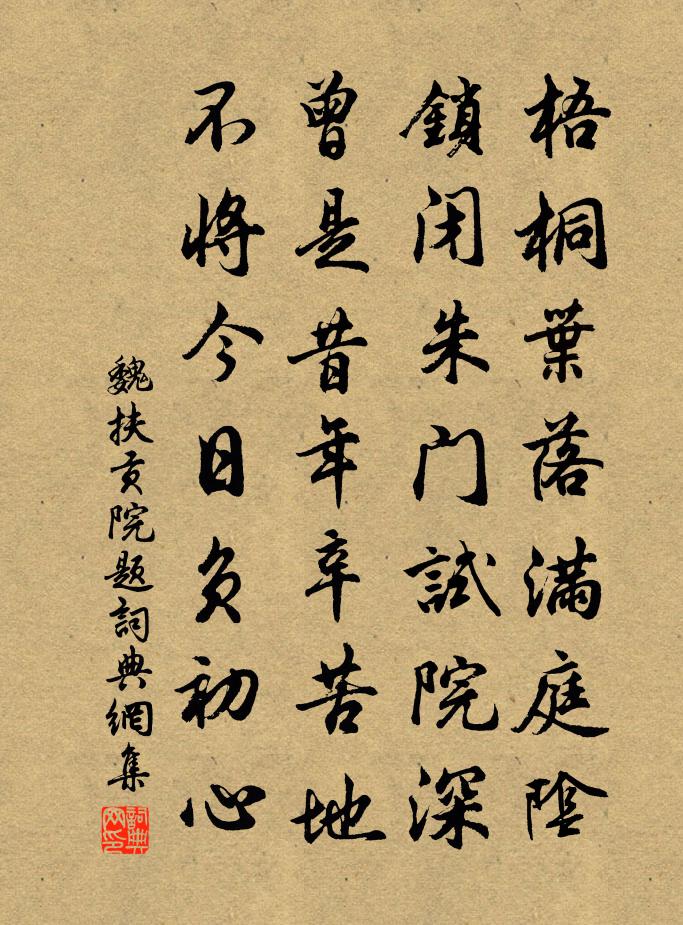 梧桐葉落滿庭陰
鎖閉朱門試院深
曾是昔年辛苦地
不將今日負初心
魏扶貢院題詞典網集
詞典网印